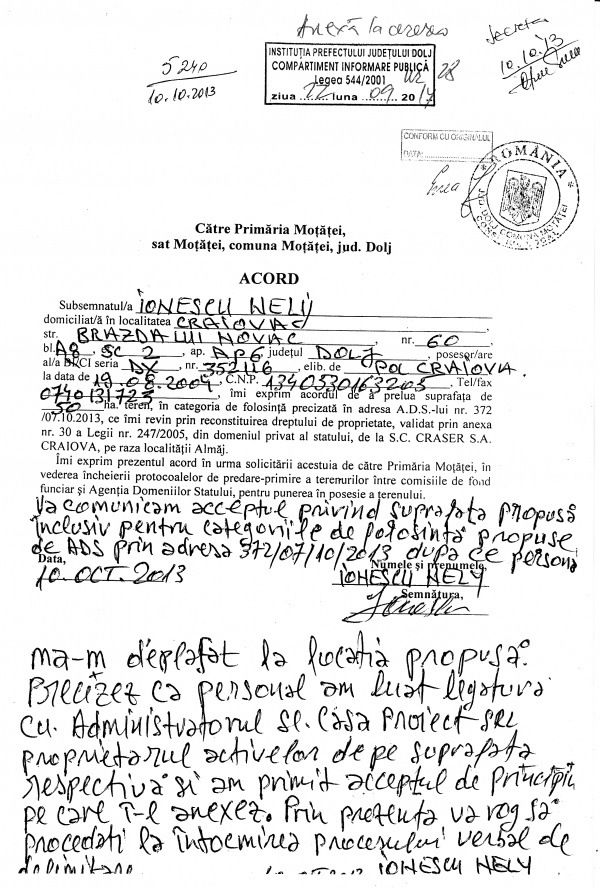 Anexă la cererea
Secretar
10.10.13
5240
10.10.2013
INSTITUȚIA PREFECTULUI JUDEȚULUI DOLJ
COMPARTIMENT INFORMARE PUBLICĂ
Legea 544/2001 nr 28
ziua 12 luna 09 20 17
CONFORM CU ORIGINALUL
DATA:
ROMÂNIA
JUD. DOLJ COMUNA MOȚĂȚEI
Către Primăria Moțăței,
sat Moțăței, comuna Moțăței, jud. Dolj
ACORD
Subsemnatul/a IONESCU NELY
domiciliat/ă în localitatea CRAIOVA
str. BRAZDA LUI NOVAC, nr. 60
bl. A8, SC 2, ap. AP6 județul DOLJ, posesor/are
al/a BI/CI seria DX, nr. 352116, elib. de POL CRAIOVA.
la data de 19.08.2004, C.N.P. 1340530163205. Tel/fax
0740131723, îmi exprim acordul de a prelua suprafața de
50 ha. teren, în categoria de folosință precizată în adresa A.D.S.-lui nr. 372
/07.10.2013, ce îmi revin prin reconstituirea dreptului de proprietate, validat prin anexa
nr. 30 a Legii nr. 247/2005, din domeniul privat al statului, de la S.C. CRASER S.A.
CRAIOVA, pe raza localității Almăj.
Îmi exprim prezentul acord în urma solicitării acestuia de către Primăria Moțăței, în
vederea încheierii protocoalelor de predare-primire a terenurilor între comisiile de fond
funciar și Agenția Domeniilor Statului, pentru punerea în posesie a terenului.
Va comunicam acceptul privind suprafata propusă
inclusiv pentru categoriile de folosintă propuse
de ADS prin adresa 372/07/10/2013 dupa ce personal
Data, Numele și prenumele,
10. OCT. 2013 IONESCU NELY
Semnătura,
Ionescu
ma-m deplasat la locatia propusă.
Precizez ca personal am luat legatura
cu Administratorul SC. Casa Proiect SRL
proprietarul activelor de pe suprafata
respectivă si am primit acceptul de principiu
pe care i-l anexez. Prin prezenta va rog să
procedati la întocmirea procesului verbal de
delimitare IONESCU NELY